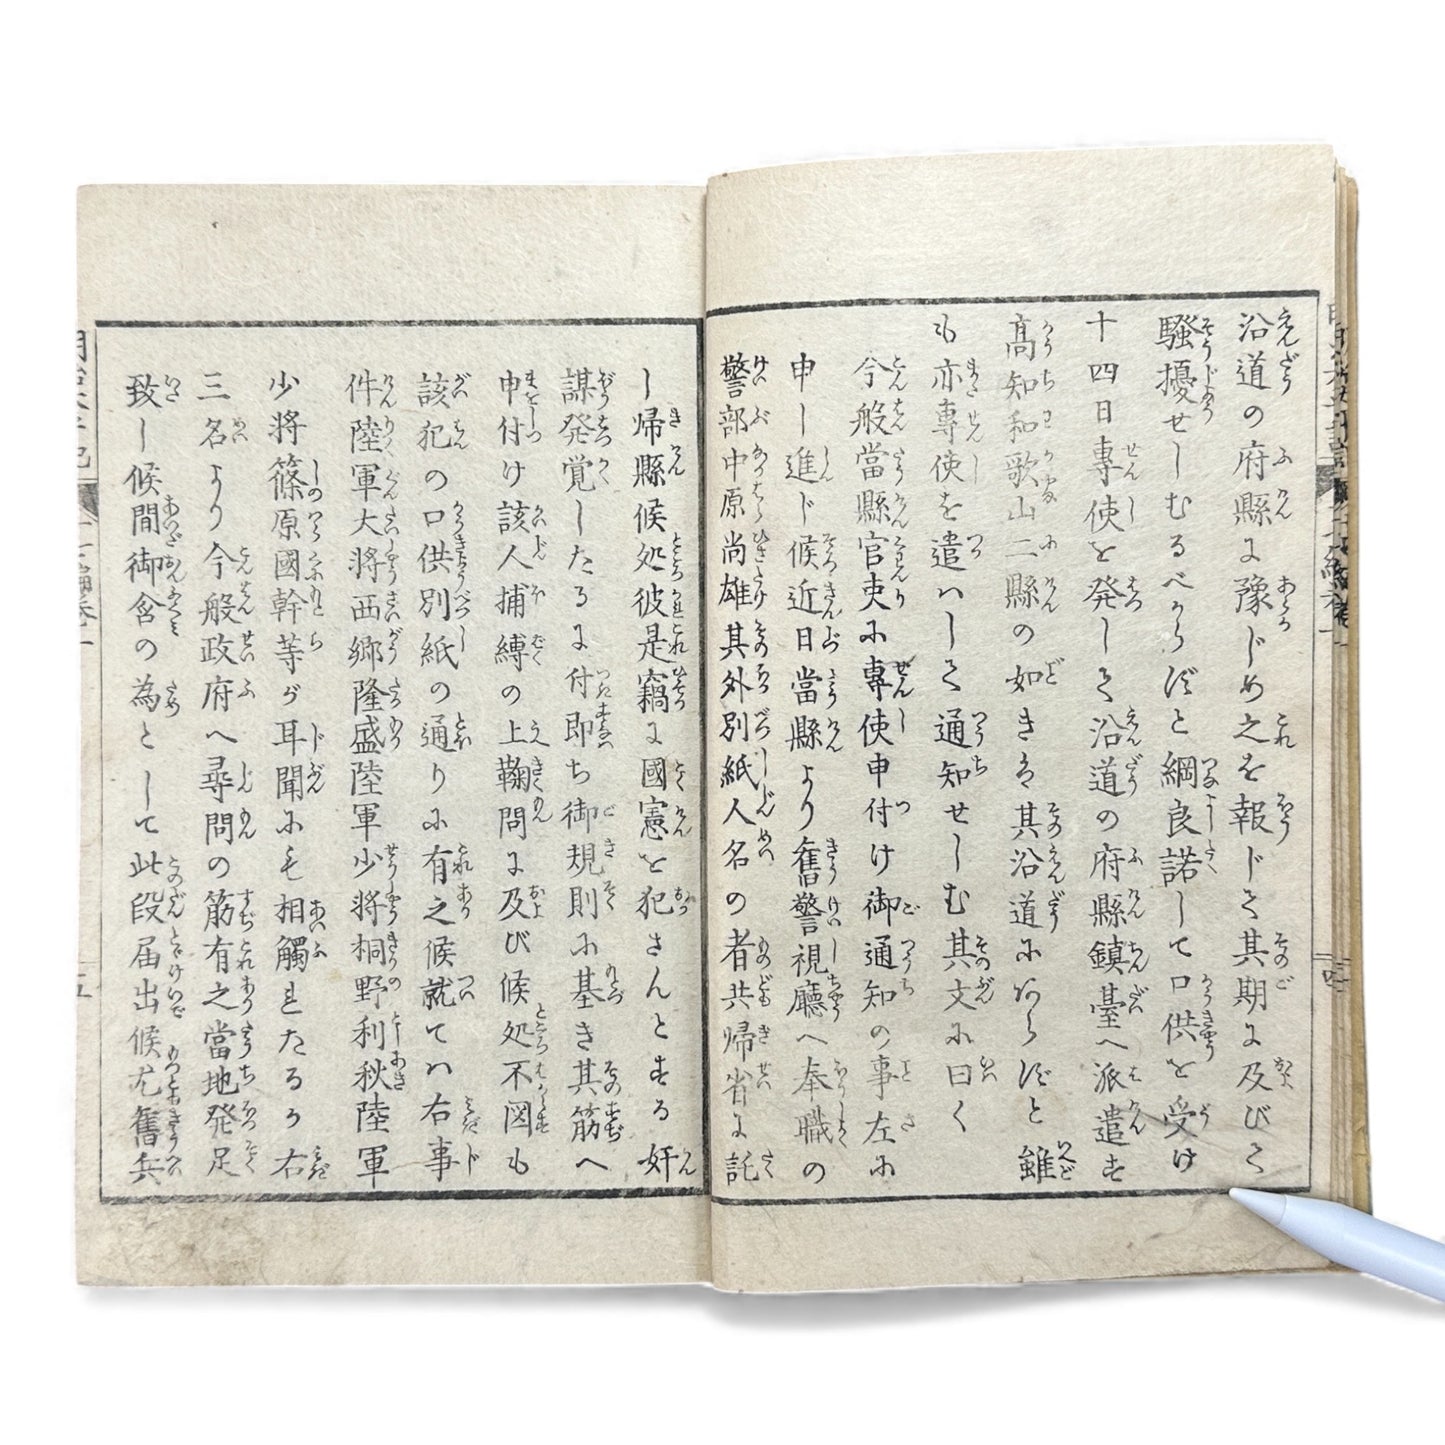 沿道の府縣に豫じめ之を報じて其期に及びて
騷擾せしむるべからずと綱良諾して口供を受け
十四日專使を発して沿道の府縣鎮臺へ派遣す
高知和歌山二縣の如きは其沿道にあらずと雖
も亦專使を遣はして通知せしむ其文に曰く
今般當縣官吏に專使申付け御通知の事左に
申し進じ候近日當縣より舊警視廳へ奉職の
警部中原尚雄其外別紙人名の者共帰省に託
し帰縣候処彼是竊に國憲を犯さんとする奸
謀発覚したるに付即ち御規則に基き其筋へ
申付け該人捕縛の上鞠問に及び候処不図も
該犯の口供別紙の通りに有之候就ては右事
件陸軍大将西郷隆盛陸軍少将桐野利秋陸軍
少将篠原國幹等が耳聞にも相觸れたるか右
三名より今般政府へ尋問の筋有之當地発足
致し候間御含の為として此段届出候尤舊兵